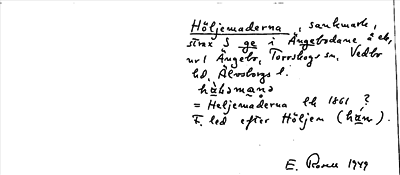 Höljemaderna, sankmark,
strax S ge i Ängebodane å ek,
nr 1 Ängebo, Torrskogs sn, Vedbo
hd, Älvsborgs l.
hàləmanə
= Heljemaderna hk 1861 ?
F. led efter Höljen (hàn).
E. Rosell 1949